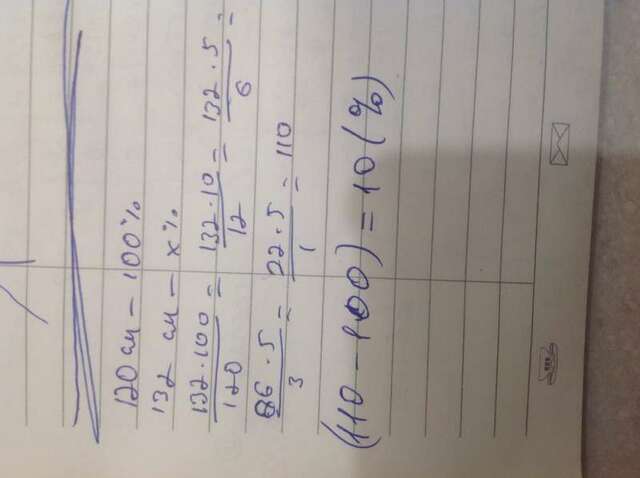 120 см - 100%
132 см - x%
132·100/120 = 132·10/12 = 132·5/6 =
66·5/3 = 22·5/1 = 110
(110 - 100) = 10 (%)